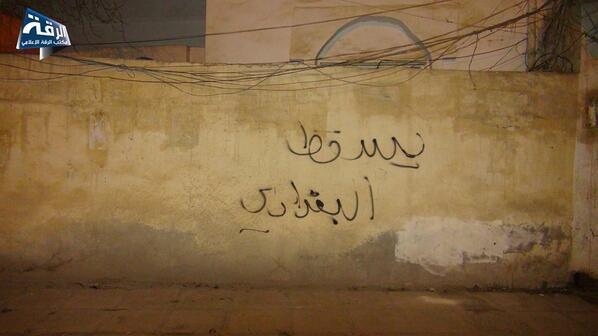 الرقة
مكتب الرقة الاعلامي
يسقط
البغدادي